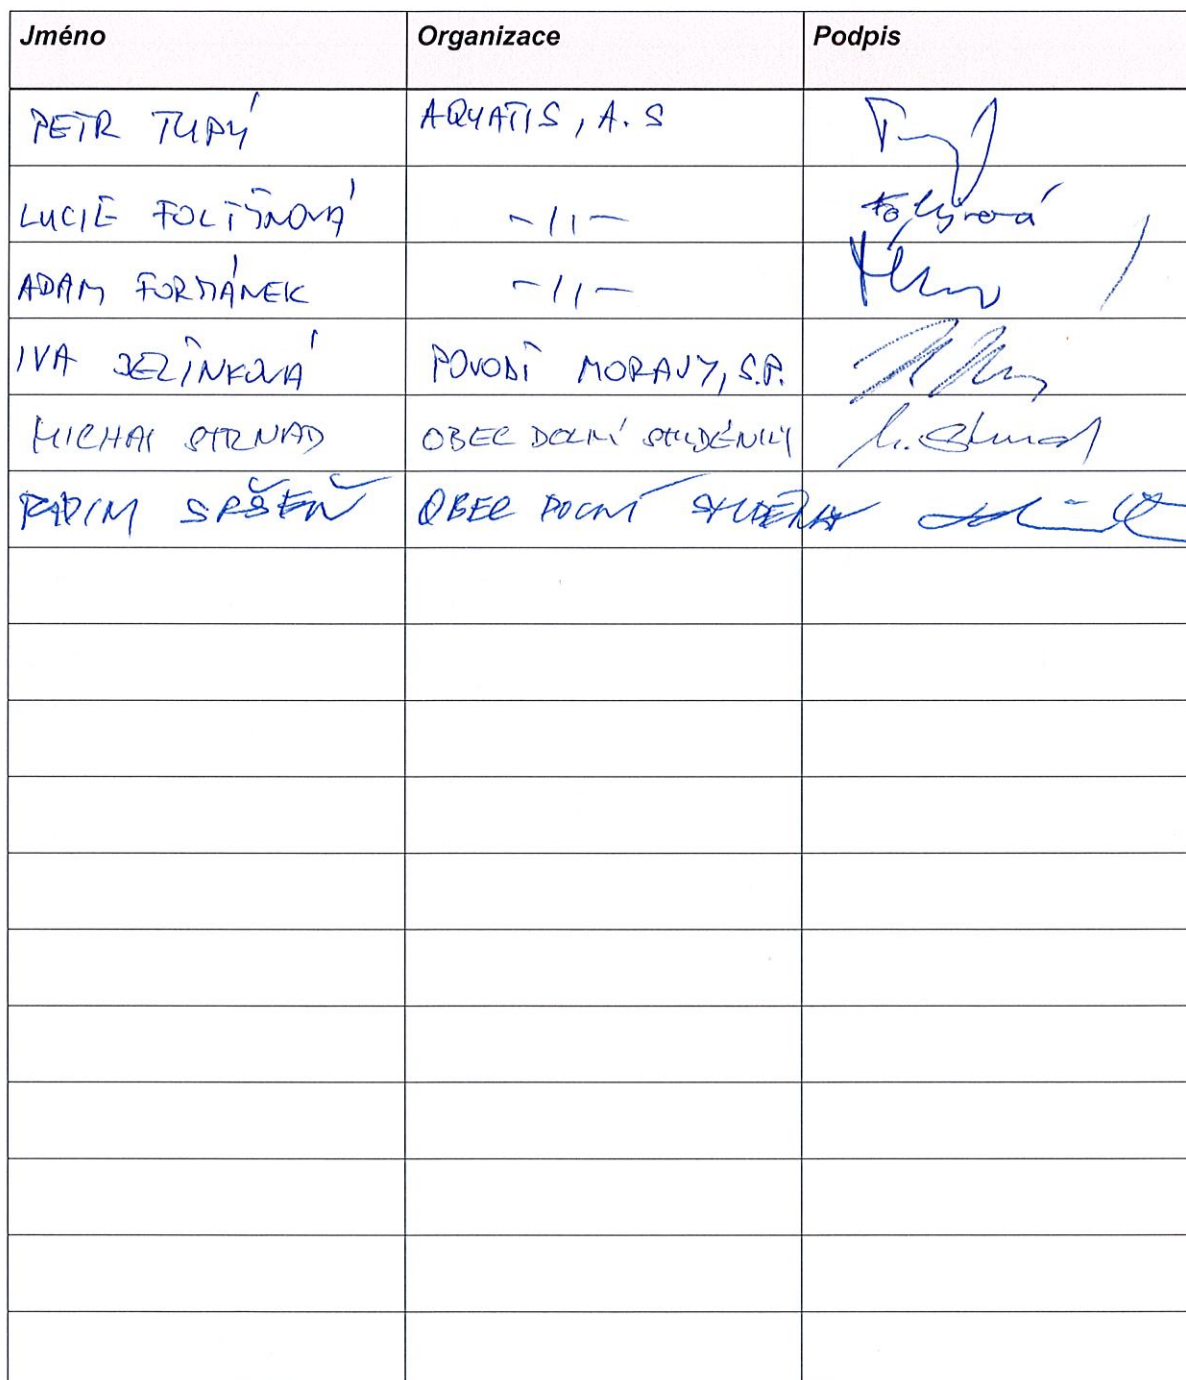 Jméno Organizace Podpis
PETR TUPÝ AQUATIS, A.S
LUCIE FOLTÝNOVÁ -//- Foltýnová
ADAM FORMÁNEK -//-
IVA JEŽÍNKOVÁ POVODÍ MORAVY, S.P.
MICHAL STRNAD OBEC DOLNÍ STUDÉNKY M. Strnad
RADIM SRŠEŇ OBEC DOLNÍ STUDÉNKY